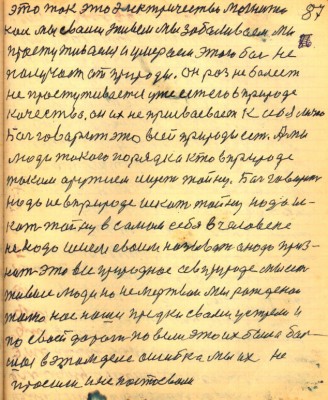 это ток это электричество магнито 87
мы своим живем мы заболиваем мы
простуживаем и умераем этого Бог не
получает от природы. Он роз не болеет
не простуживается уже есть его в природе
качество, он их не призывает к себе лично
Бог говорит это всей природы ест. А мы
люди такого порядка кто в природе
таким аружием ищет тайну. Бог говорит
нодо не в природе искат тайну нодо ис-
кат тайну в самом себя в человеке
не нодо своим а нодо приз-
нат это все природное в природе мы ест
живые люди но не мы рождены
токо нас наши предки своими и
по своей дороги повели это их была бол-
шая в этом деле ошибка мы их не
просили и не